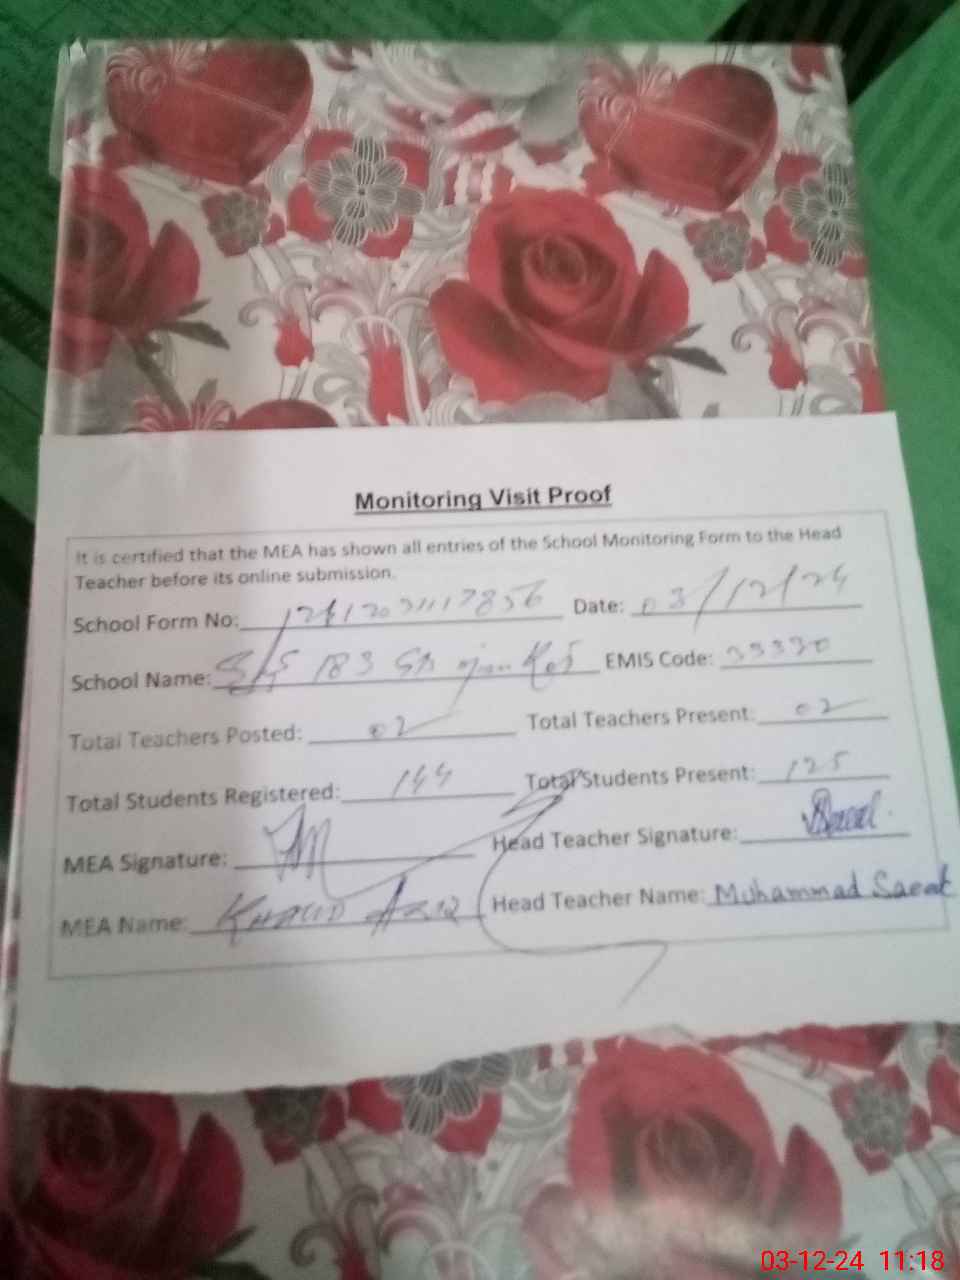 Monitoring Visit Proof
It is certified that the MEA has shown all entries of the School Monitoring Form to the Head
Teacher before its online submission.
School Form No: Date: 03/12/24
School Name: 183 EMIS Code:
Total Teachers Posted: 02 Total Teachers Present: 02
Total Students Registered: 144 Total Students Present: 125
MEA Signature: Head Teacher Signature:
MEA Name: Khalid Aziz Head Teacher Name: Muhammad
03-12-24 11:18